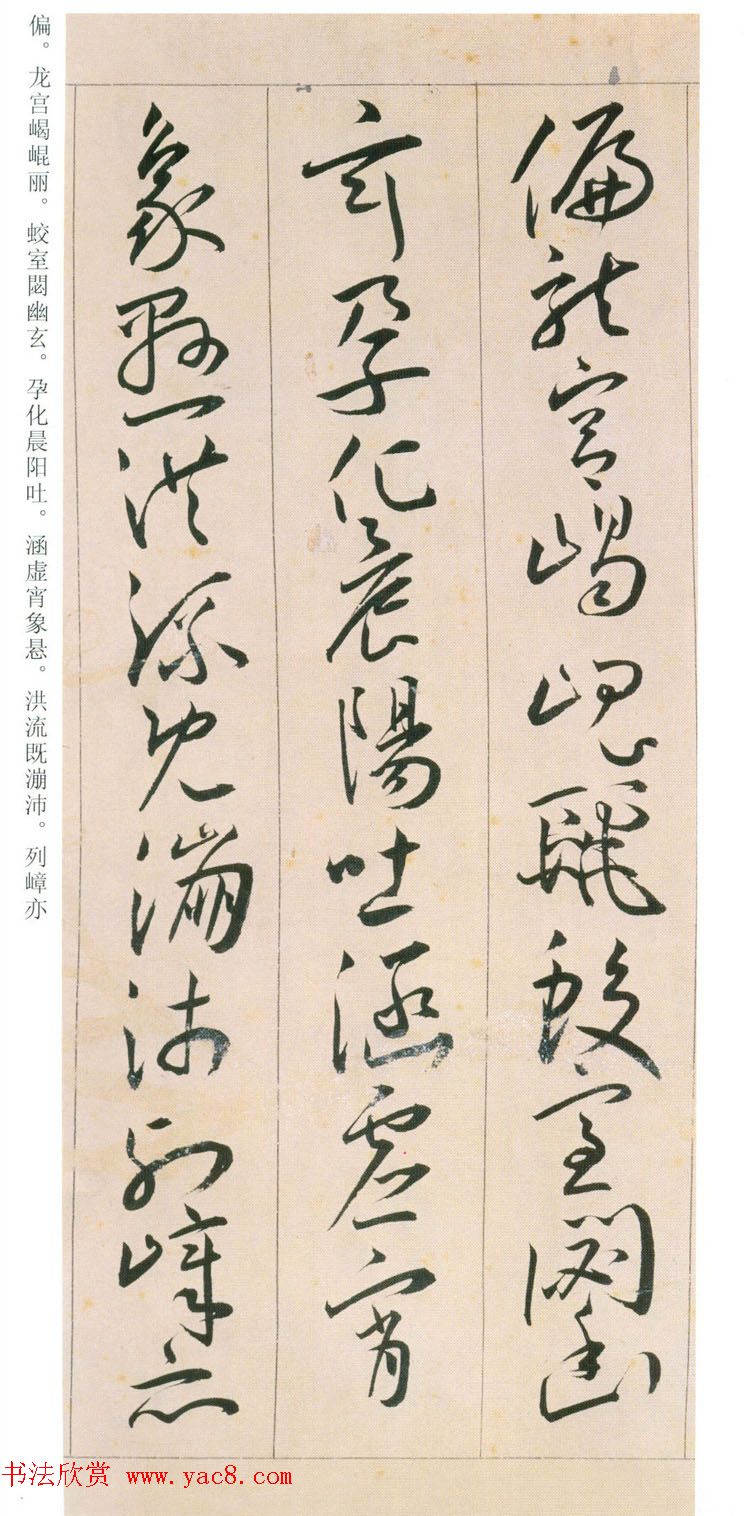 偏龍宮嵑崐麗蛟室閟幽
玄孕化晨陽吐涵虛宵
象懸洪流既漰沛列嶂亦
偏。龙宫嵑崐丽。蛟室閟幽玄。孕化晨阳吐。涵虚宵象悬。洪流既漰沛。列嶂亦
书法欣赏 www.yac8.com